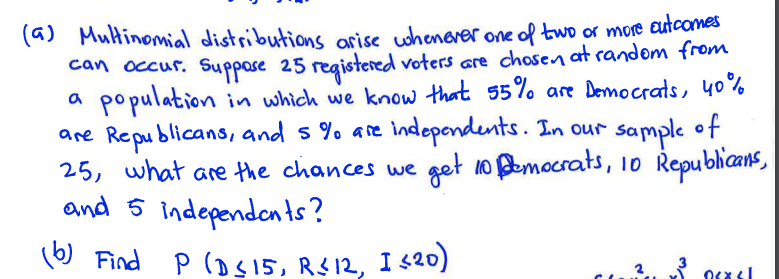 (a) Multinomial distributions arise whenever one of two or more outcomes
can occur. Suppose 25 registered voters are chosen at random from
a population in which we know that 55% are Democrats, 40%
are Republicans, and 5% are independents. In our sample of
25, what are the chances we get 10 Democrats, 10 Republicans,
and 5 independents?
(b) Find P (D≤15, R≤12, I≤20)